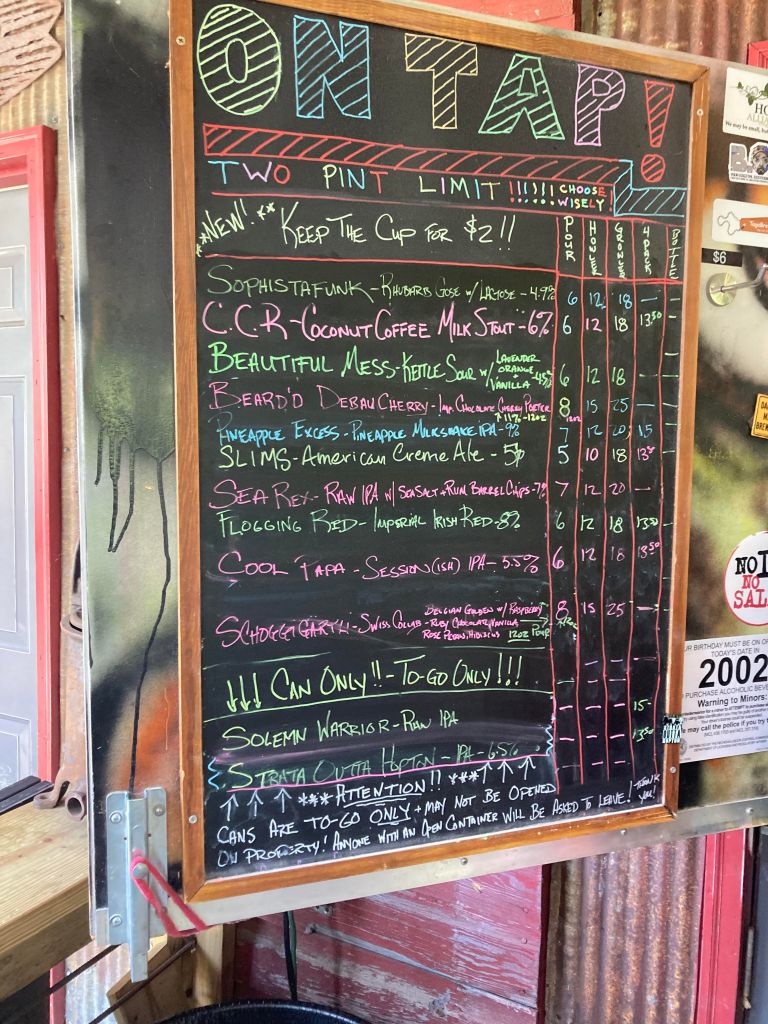 ON TAP!
TWO PINT LIMIT!!!!!! CHOOSE WISELY!
**NEW!** KEEP THE CUP FOR $2!!
POUR HOWLER GROWLER 4PACK BOTTLE
SOPHISTAFUNK - RHUBARB GOSE W/ LACTOSE - 4.9% 6 12 18 — -
C.C.R - COCONUT COFFEE MILK STOUT - 6% 6 12 18 13.50 -
BEAUTIFUL MESS - KETTLE SOUR W/ LAVENDER ORANGE VANILLA 6 12 18 — -
BEARD'D DEBAUCHERRY - IMP. CHOCOLATE CHERRY PORTER 8 15 25 — -
↑11% - 12OZ 12OZ
PINEAPPLE EXCESS - PINEAPPLE MILKSHAKE IPA - 9% 7 12 20 15 -
SLIMS - AMERICAN CREME ALE - 5% 5 10 18 -
SEA REX - RAW IPA W/ SEA SALT + RUM BARREL CHIPS - 7% 7 12 20 — -
FLOGGING RED - IMPERIAL IRISH RED - 8% 6 12 18 13.50 -
COOL PAPA - SESSION(ISH) IPA - 5.5% 6 12 18 13.50 -
SWISS COLLAB - BELGIAN GOLDEN W/ RASPBERRY 8 15 25 — -
RUBY CHOCOLATE, VANILLA
ROSE PETALS, HIBISCUS 12OZ POUR
↓↓↓ CAN ONLY!! - TO-GO ONLY!!!
SOLEMN WARRIOR - RAW IPA - - - 15 -
STRATA OUTTA HOPTON - IPA - 6.5% - - - 13.50 -
↑ ↑ ↑ *** ATTENTION!! *** ↑ ↑ ↑
CANS ARE TO-GO ONLY + MAY NOT BE OPENED
ON PROPERTY! ANYONE WITH AN OPEN CONTAINER WILL BE ASKED TO LEAVE! THANK YOU!
$6
NO
NO
SAL
UR BIRTHDAY MUST BE ON OR
TODAY'S DATE IN
2002
PURCHASE ALCOHOLIC BEVE
Warning to Minors:
may call the police if you try